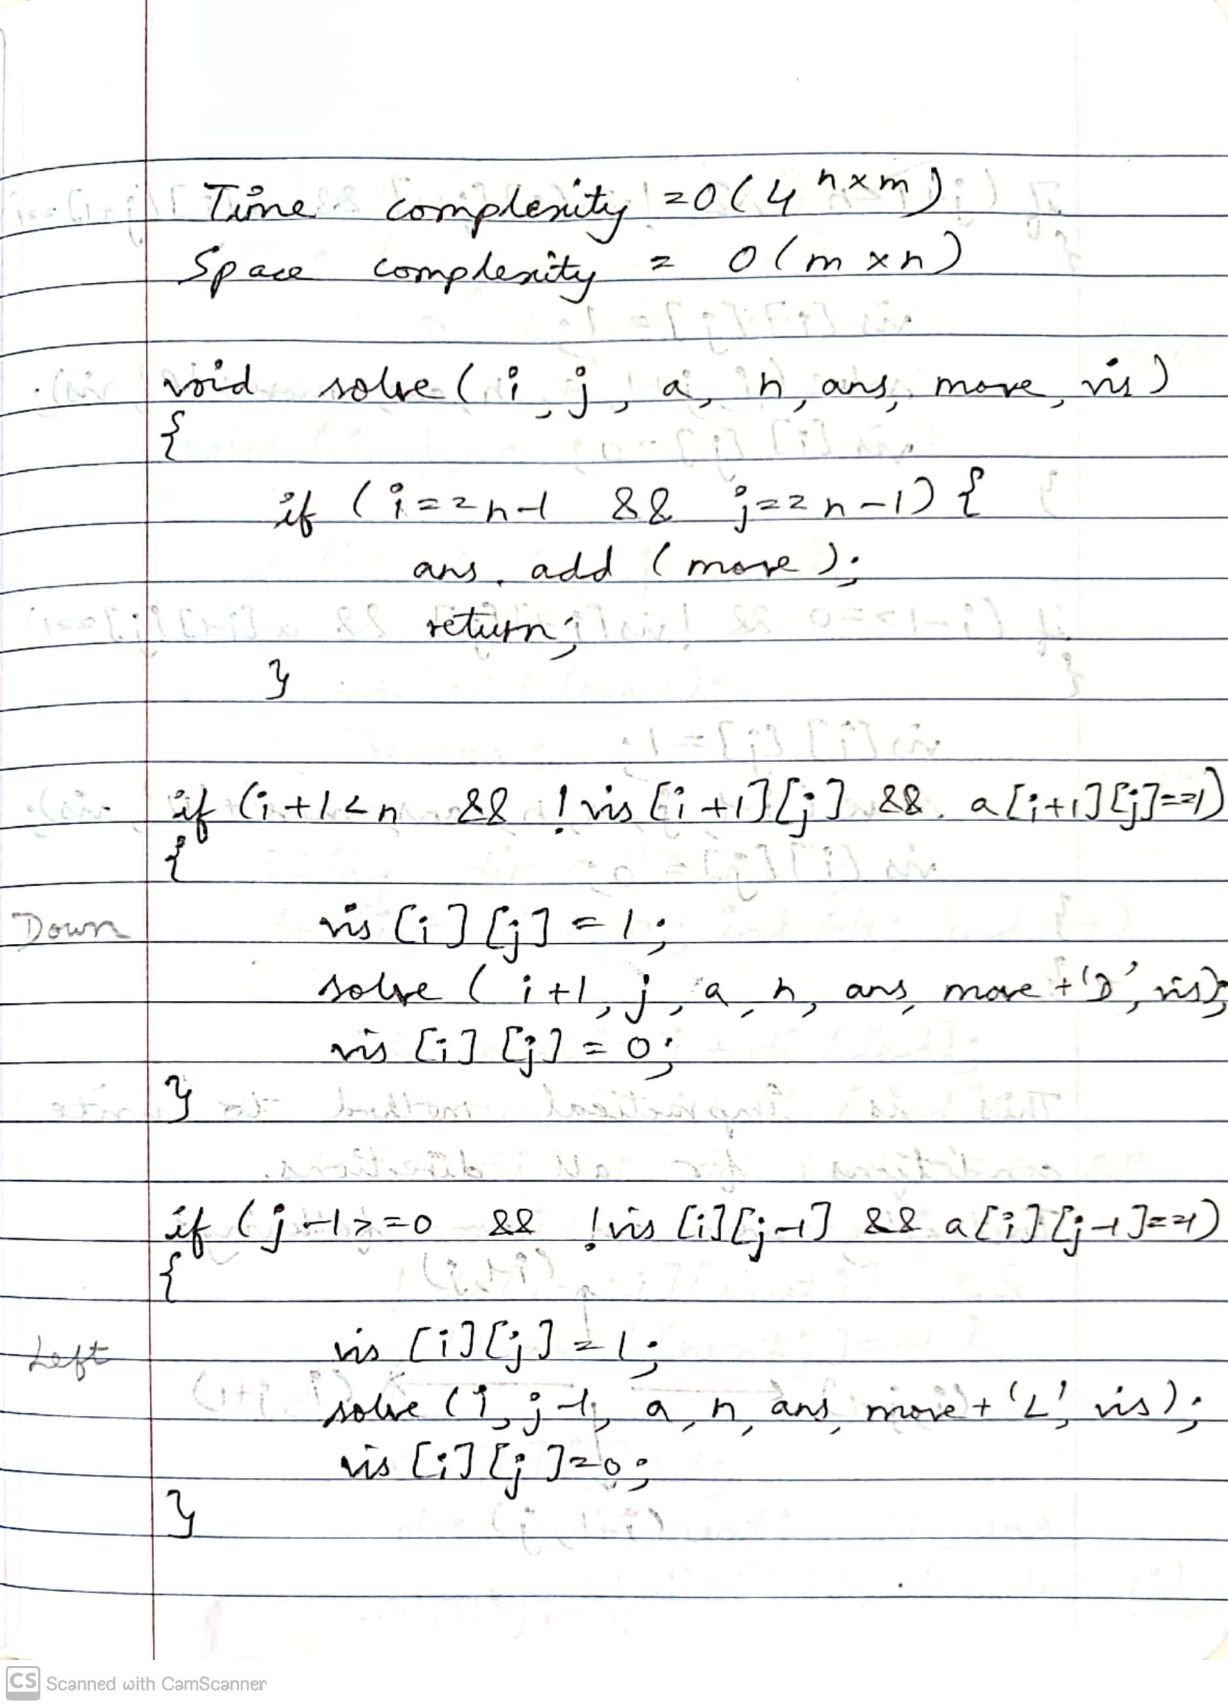 Time complexity = O(4^n×m)
Space complexity = O(m×n)
void solve(i, j, a, n, ans, move, vis)
{
if (i==n-1 && j==n-1) {
ans.add(move);
return;
}
if (i+1<n && !vis[i+1][j] && a[i+1][j]==1)
{
Down
vis[i][j] = 1;
solve(i+1, j, a, n, ans, move+'D', vis);
vis[i][j] = 0;
}
if (j-1>=0 && !vis[i][j-1] && a[i][j-1]==1)
{
Left
vis[i][j] = 1;
solve(i, j-1, a, n, ans, move+'L', vis);
vis[i][j]=0;
}
CS Scanned with CamScanner